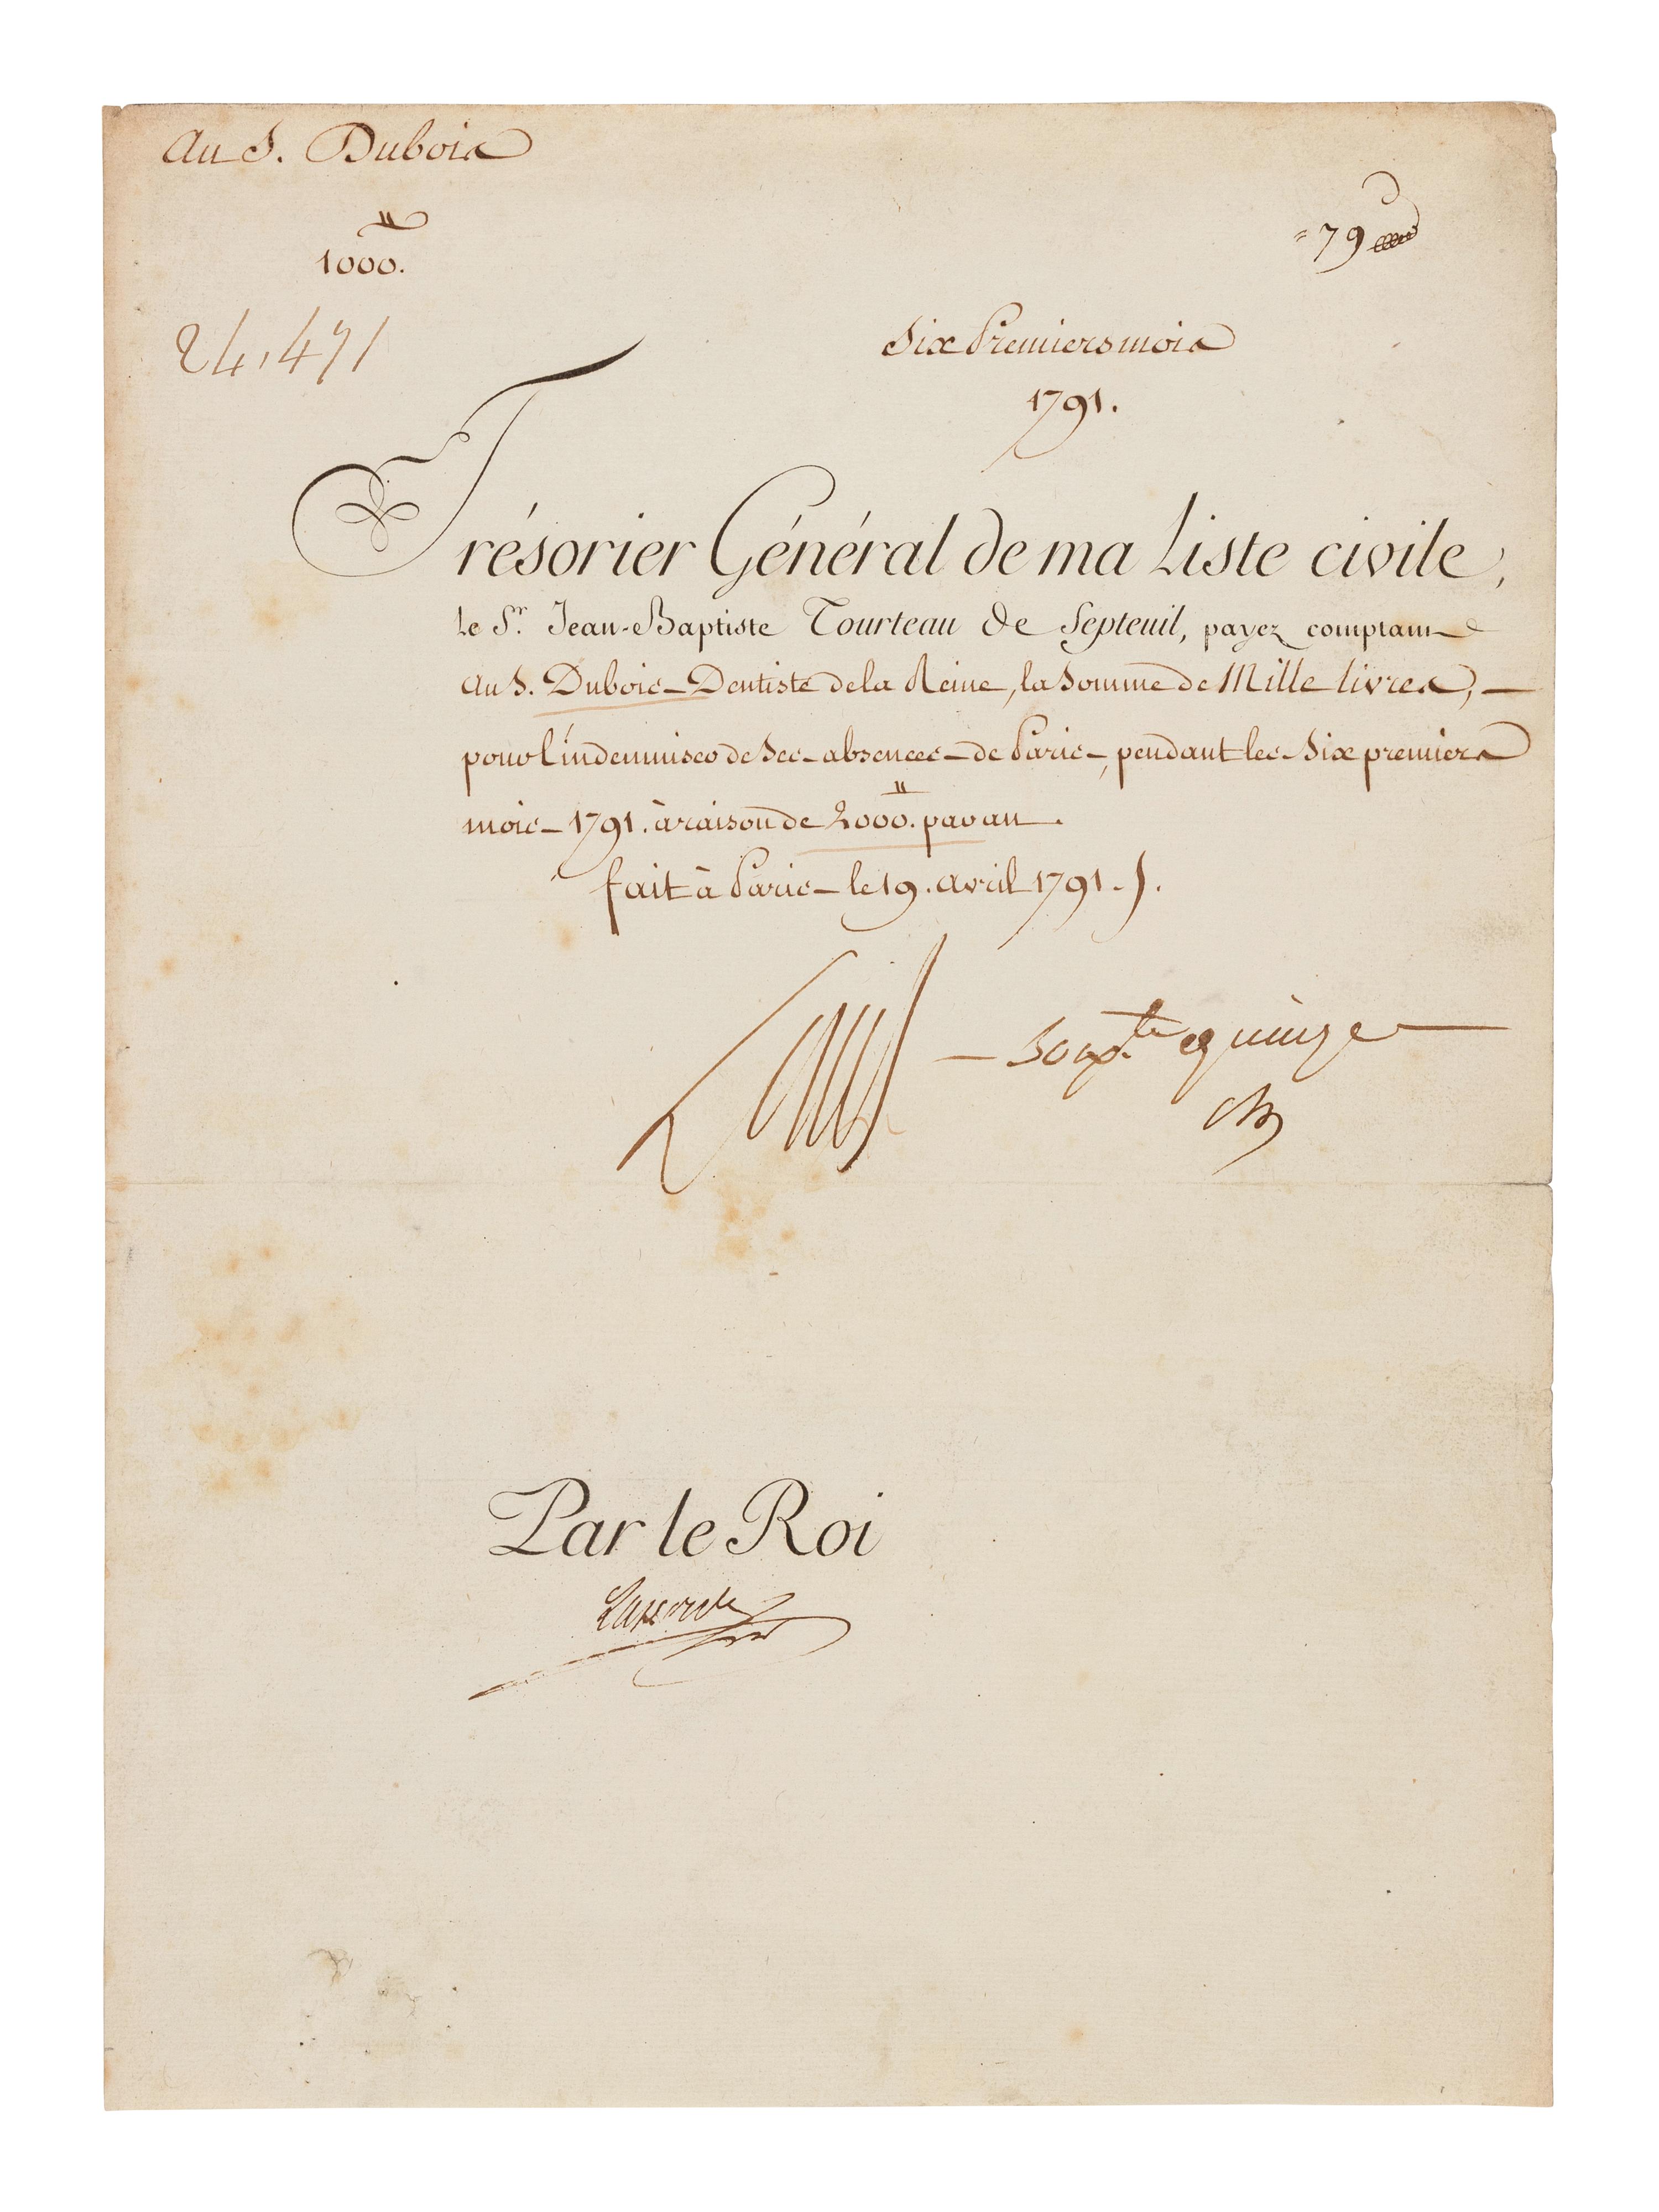 Au S. Dubois
₶
1000.
79
24,471
Six Premiers mois
1791.
Trésorier Général de ma Liste civile,
le Sr. Jean-Baptiste Tourteau de Septeuil, payez comptant
au S. Dubois Dentiste de la Reine, la Somme de Mille livres,
pour l'indemniser de Ses absences de Paris, pendant les Six premiers
mois 1791. à raison de 2000.₶ par an.
fait à Paris le 19. avril 1791.
Louis
Soixte quinze
Par le Roi
Laporte